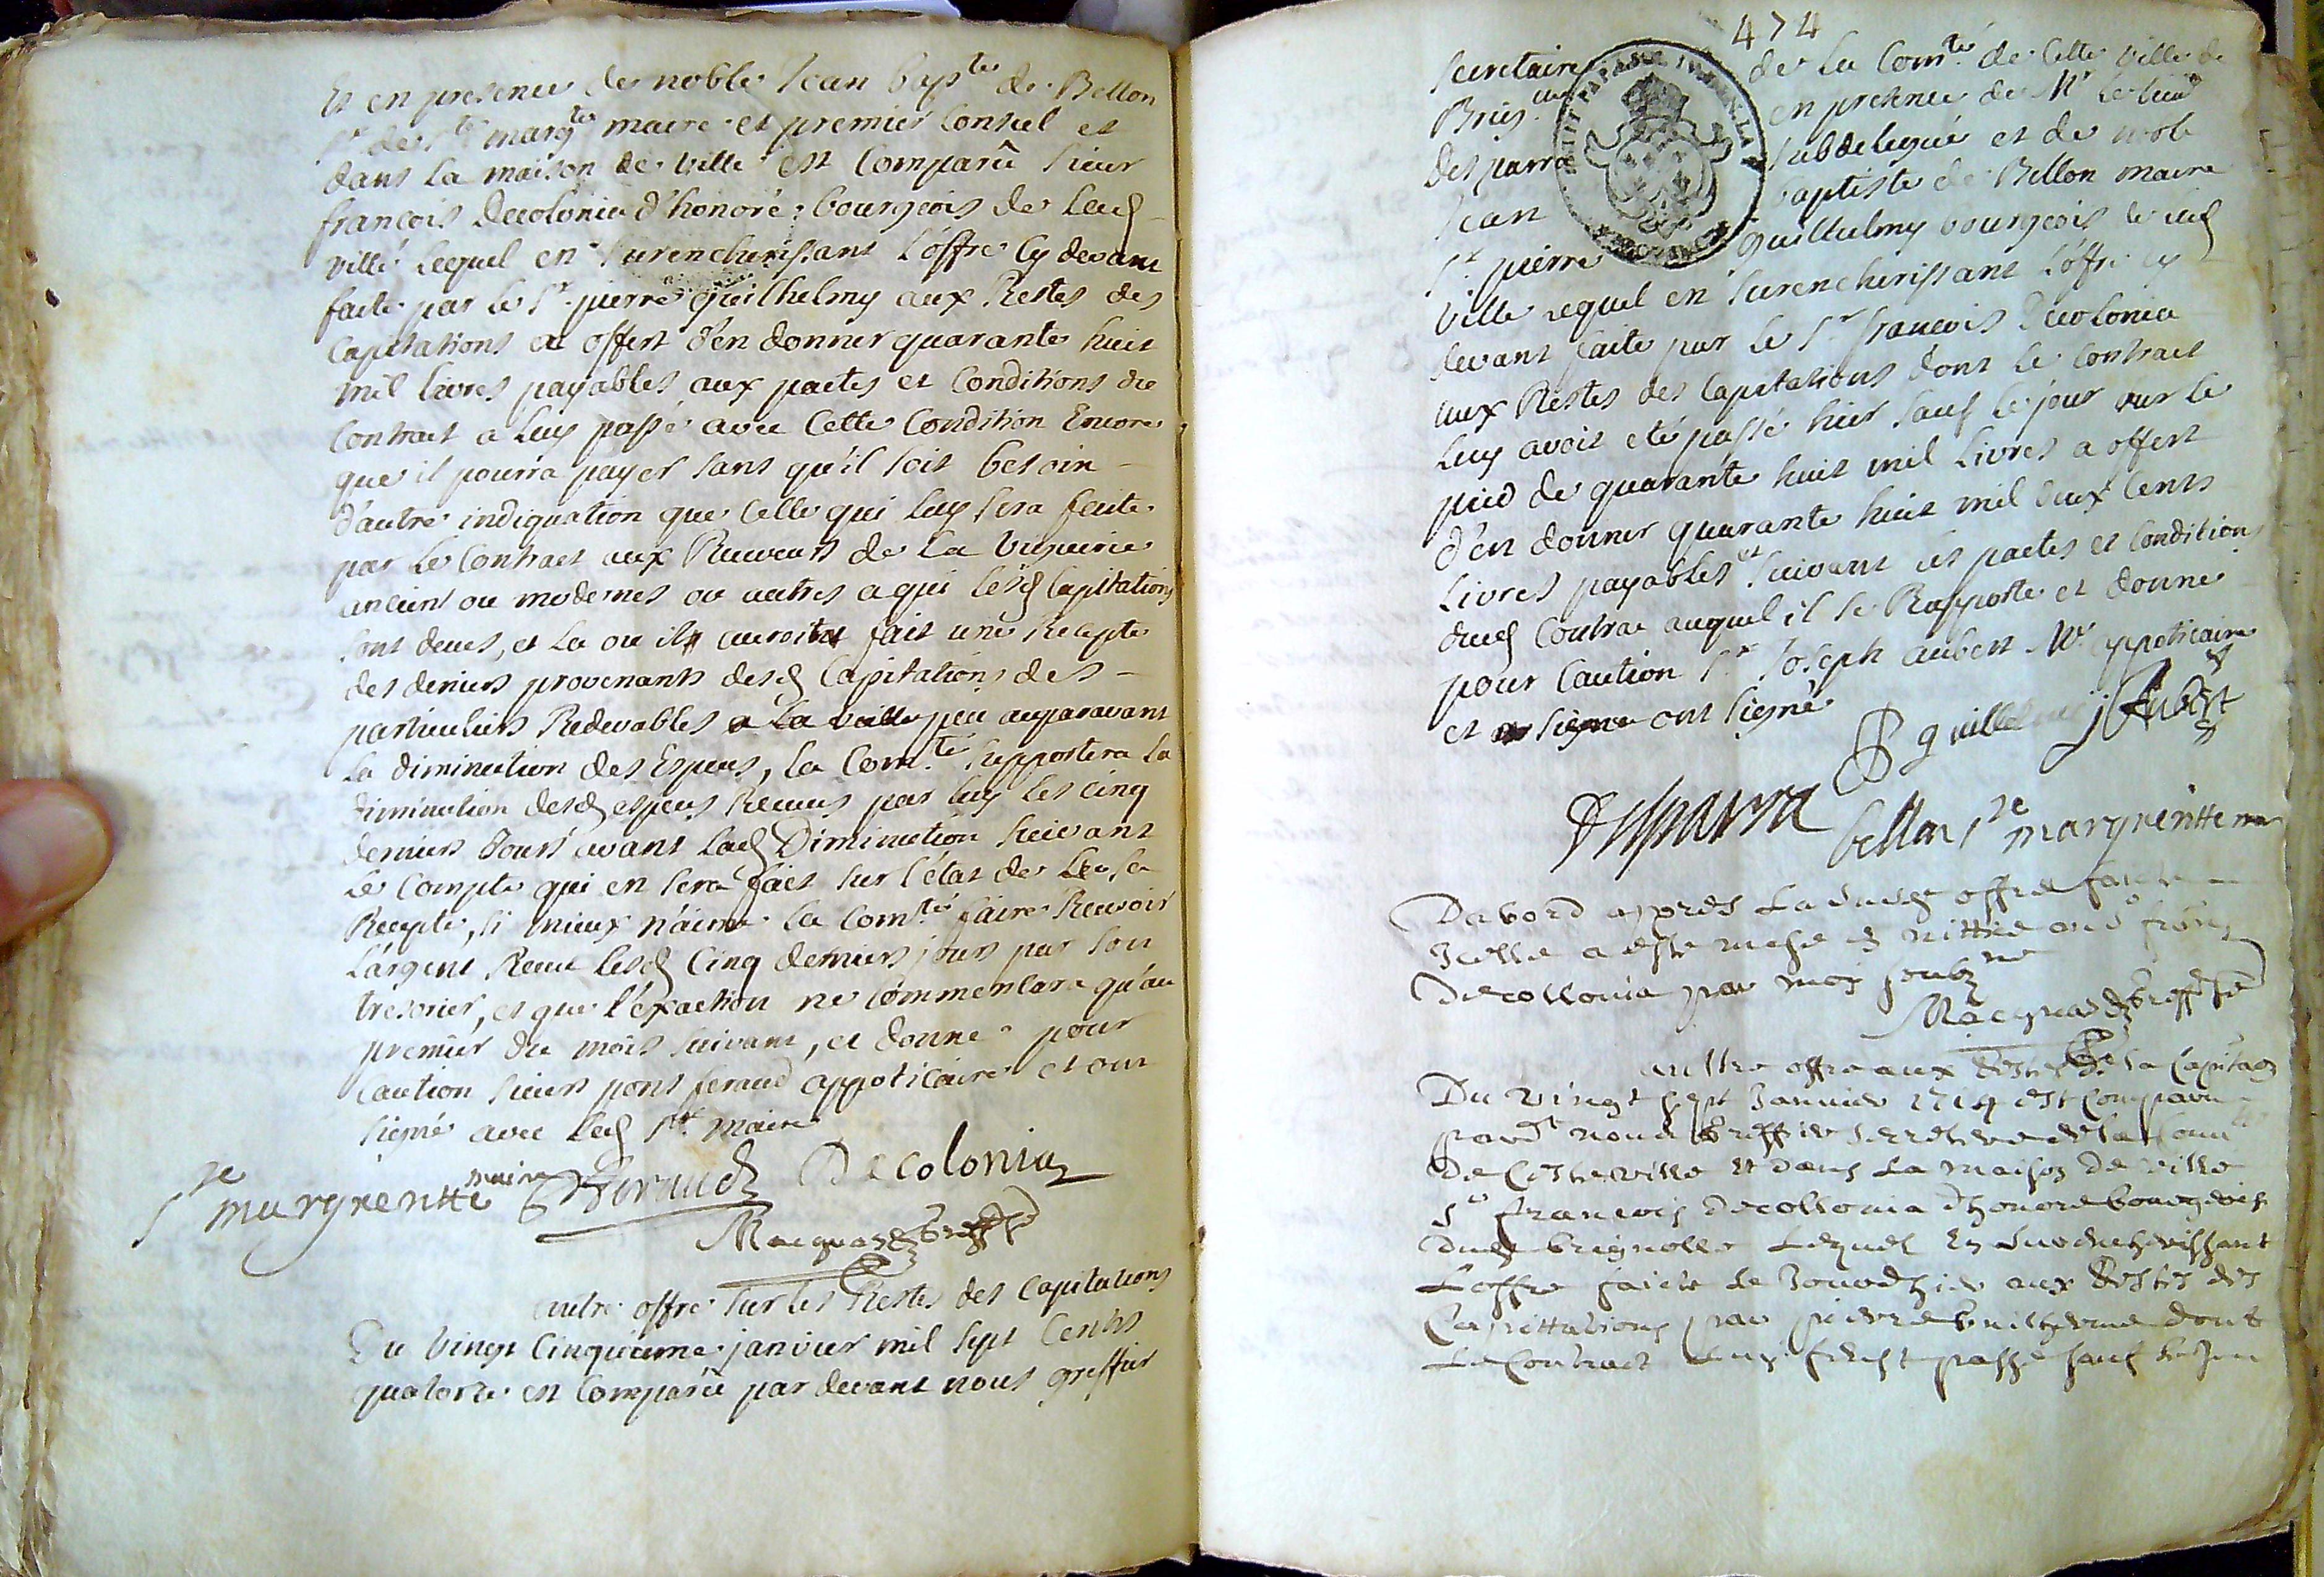 Et en presence de noble Jean bap.te de Bellon
S.r de S.te marg.te maire et premier Consul et
dans la maison de ville est Comparû sieur
francois Decolonia d'honoré bourgeois de Lad
ville Lequel en surencherissant L'offre Cy devant
faite par le S.r pierre guilhelmy aux Restes des
Capitations a offert d'en donner quarante huit
mil livres payables aux pactes et Conditions du
Contract a Luy passé avec Cette Condition Encore
que il pourra payer sans qu'il soit besoin
d'autre indiquation que Celle qui Luy sera faite
par Le Contract aux Receveurs de La viguerie
anciens ou modernes ou autres a qui lesd Capitations
sont deues, et La ou il auroit fait une Recepte
des deniers provenants desd Capitations des
particuliers Redevables a La veille peu auparavant
La diminution des Especes, la Com.té supportera La
diminution desd especes Receues par luy Les Cinq
derniers Jours avant Lad Diminution suivant
Le Compte qui en sera fait sur l'état de
Recepte, si mieux n'aime la Com.té faire Recevoir
L'argent Receu Lesd Cinq derniers jours par son
tresorier, et que l'éxaction ne Commencara qu'au
premier du mois suivant, et donne pour
Caution sieur pons feraud appoticaire et ont
signé avec Led S.r maire
S.te margueritte maire Feraud Decolonia
Maquan greff.
autre offre sur les Restes des Capitations
Du vingt Cinquieme janvier mil sept Cents
quatorze est Comparû par devant nous greffier
474
secretaire de La Com.té de Cette ville de
Brig.lle en presence de M.r Le Lieu.t
desparra subdelegué et de noble
Jean baptiste de Bellon maire
S.r pierre guilhelmy bourgeois de Lad
ville Lequel en surencherissant L'offre cy
devant faite par le S.r francois Decolonia
aux Restes des Capitations dont Le Contract
Luy avoit eté passé hier sauf Le jour sur le
pied de quarante huit mil Livres a offert
d'en donner quarante huit mil deux Cents
Livres payables et suivant les pactes et Conditions
dud Contrac auquel il se Rapporte et donne
pour Caution S.r Joseph aubert M.e appoticaire
et ont signé
P guillelmy j Aubert
Desparra bellon S.te margueritte
Dabord appres La susd offre faicte
Icelle a esté
Decollonia par moy soub.ne
Maquan greff.
aultre offre aux Restes de la Capita.on
Du vingt sept Janvier 1714 est Comparu
pard.t nous greffier secretere de la Com.té
De Ceste ville Et dans La maison de ville
S.r francois Decollonia d'honore bourgeois
dud brignolle Lequel En surencherissant
Loffre faicte Le Jour d'hier aux Restes des
Capittations par pierre guilhelme dont
Le Contract Luy feust passé sauf Le Jour